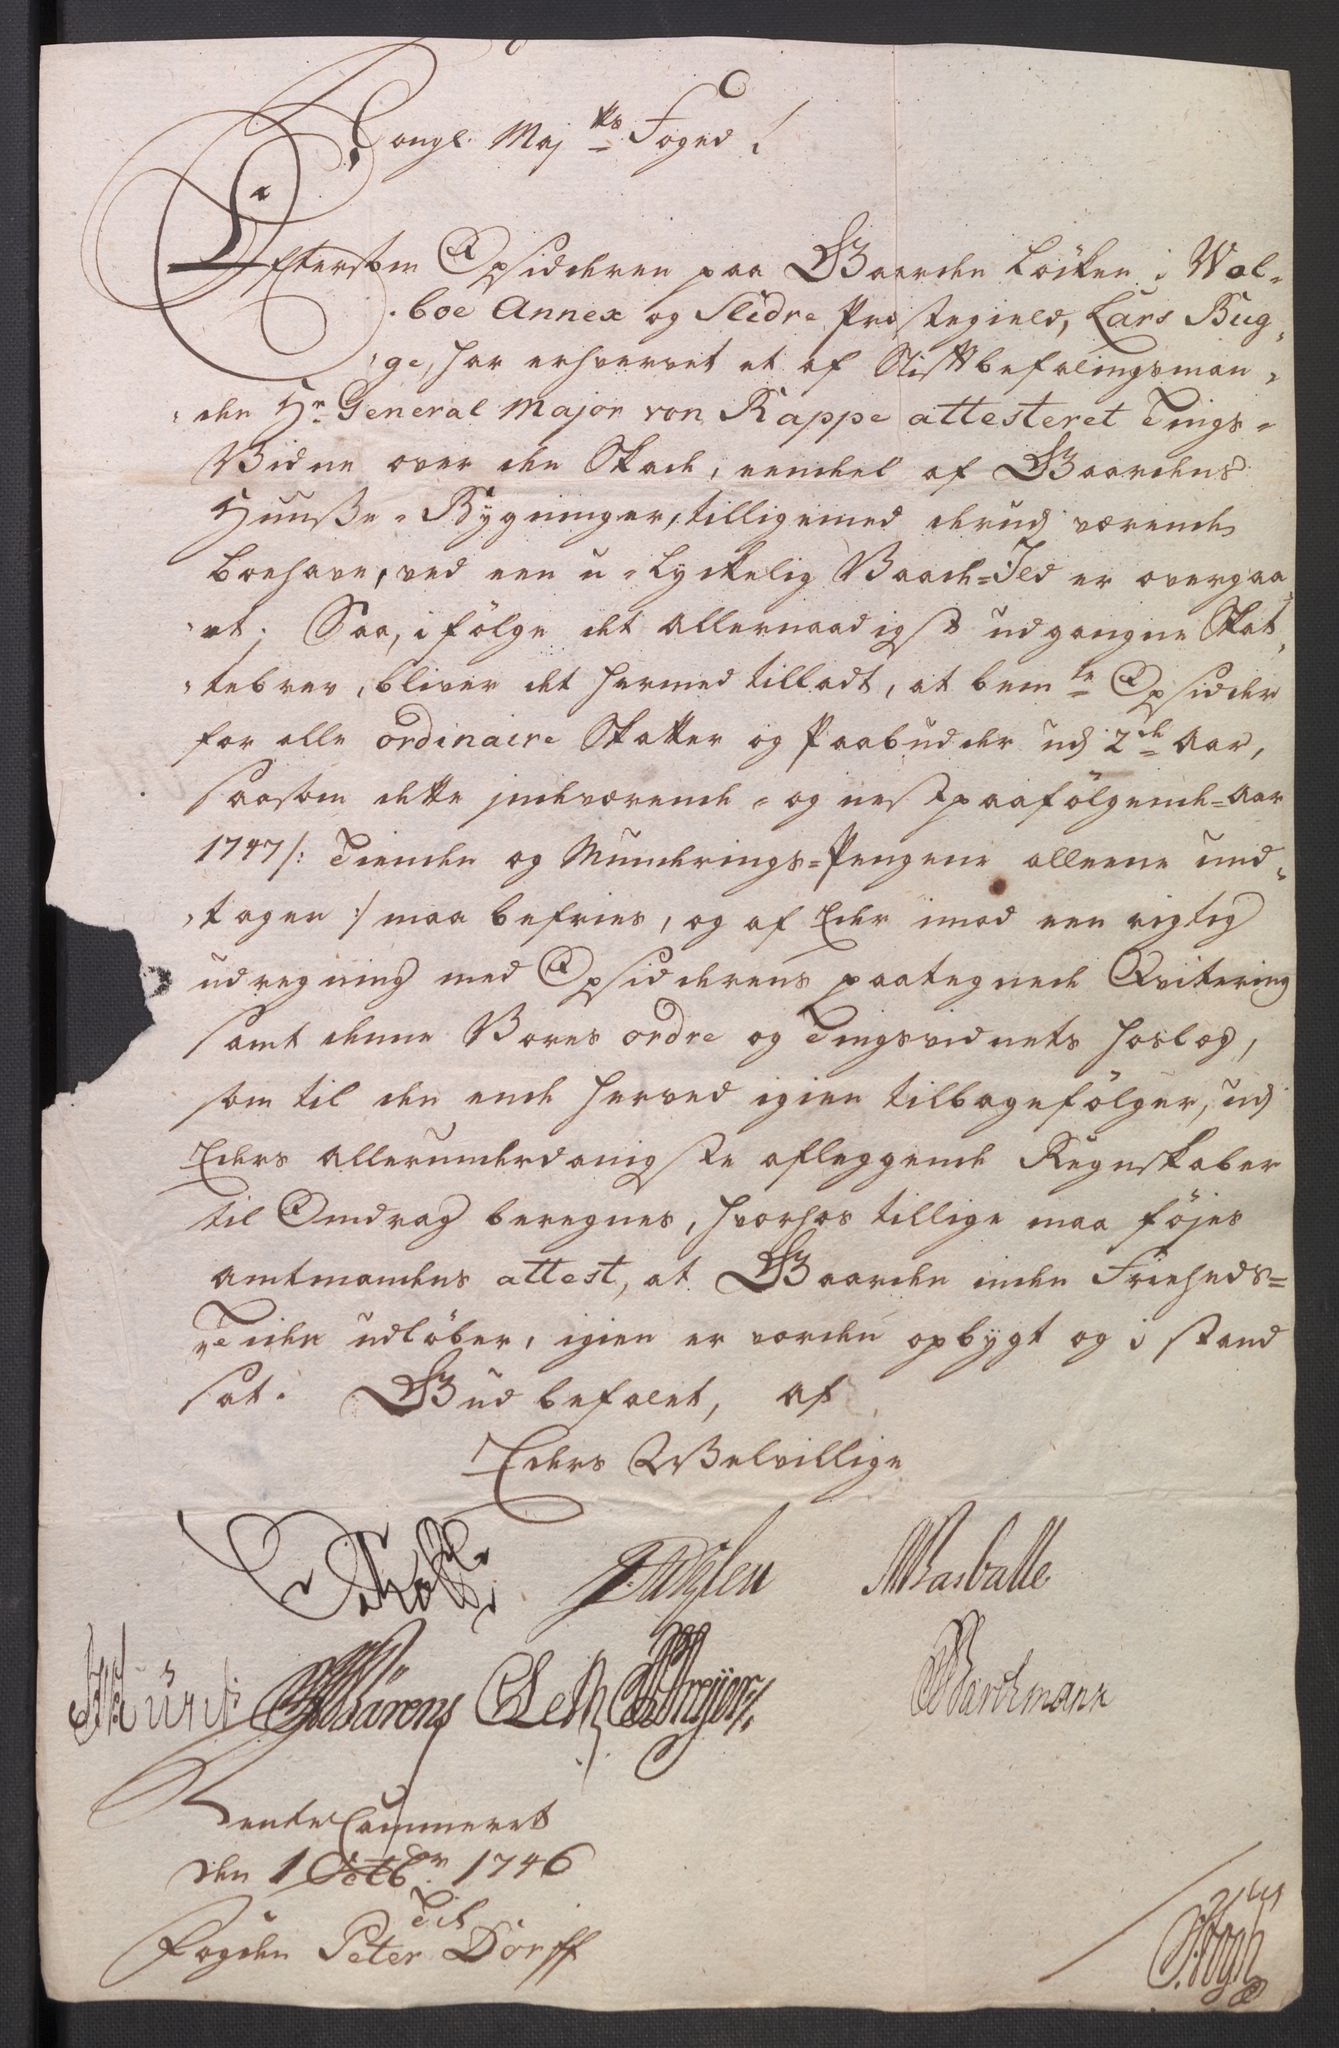 Kongl. Maj.ts Foged
Eftersom Opsidderen paa Gaarden Löken i Wol-
boe Annex og Slidre Præstegield, Lars Bug-
ge, har erhvervet et af Stiftbefalingsman-
den Hr. General Major von Rappe attesteret Tings-
Vidne over den Skade, eendeel af Gaardens
Huuße-Bygninger, tilligemed derudj værende
boehave, ved een u-lyckelig Vaade-Ild er overgaa-
et. Saa, i fölge det allernaadigst udgangne Skat-
tebrev, bliver det hermed tilladt, at bem.te Opsidder
for alle ordinaire Skatter og Paabudder udj 2de Aar,
saasom dette jndeværende- og nestpaafölgende-Aar
1747/: Tienden og Munderings-Pengene alleene und-
tagen :/ maa befries, og af Eder imod een rigtig
udregning med Opsidderens paategnede Qvitering
samt denne Vores ordre og Tingsvidnets hoslag,
som til den ende herved igien tilbagefölger, udj
Eders allerunderdanigste aflæggende Regnskaber
til Omdrag beregnes, hvorhos tillige maa föjes
Amtmandens attest, at Gaarden inden Friehеds-
Tiden udlöber, igien er vorden opbygt og i stand
sat. Gud befalet, af
Eders Velvillige
Bärens
Rente Cammeret
den 1 Octbr. 1746
Til
Fogden Peter Dorff